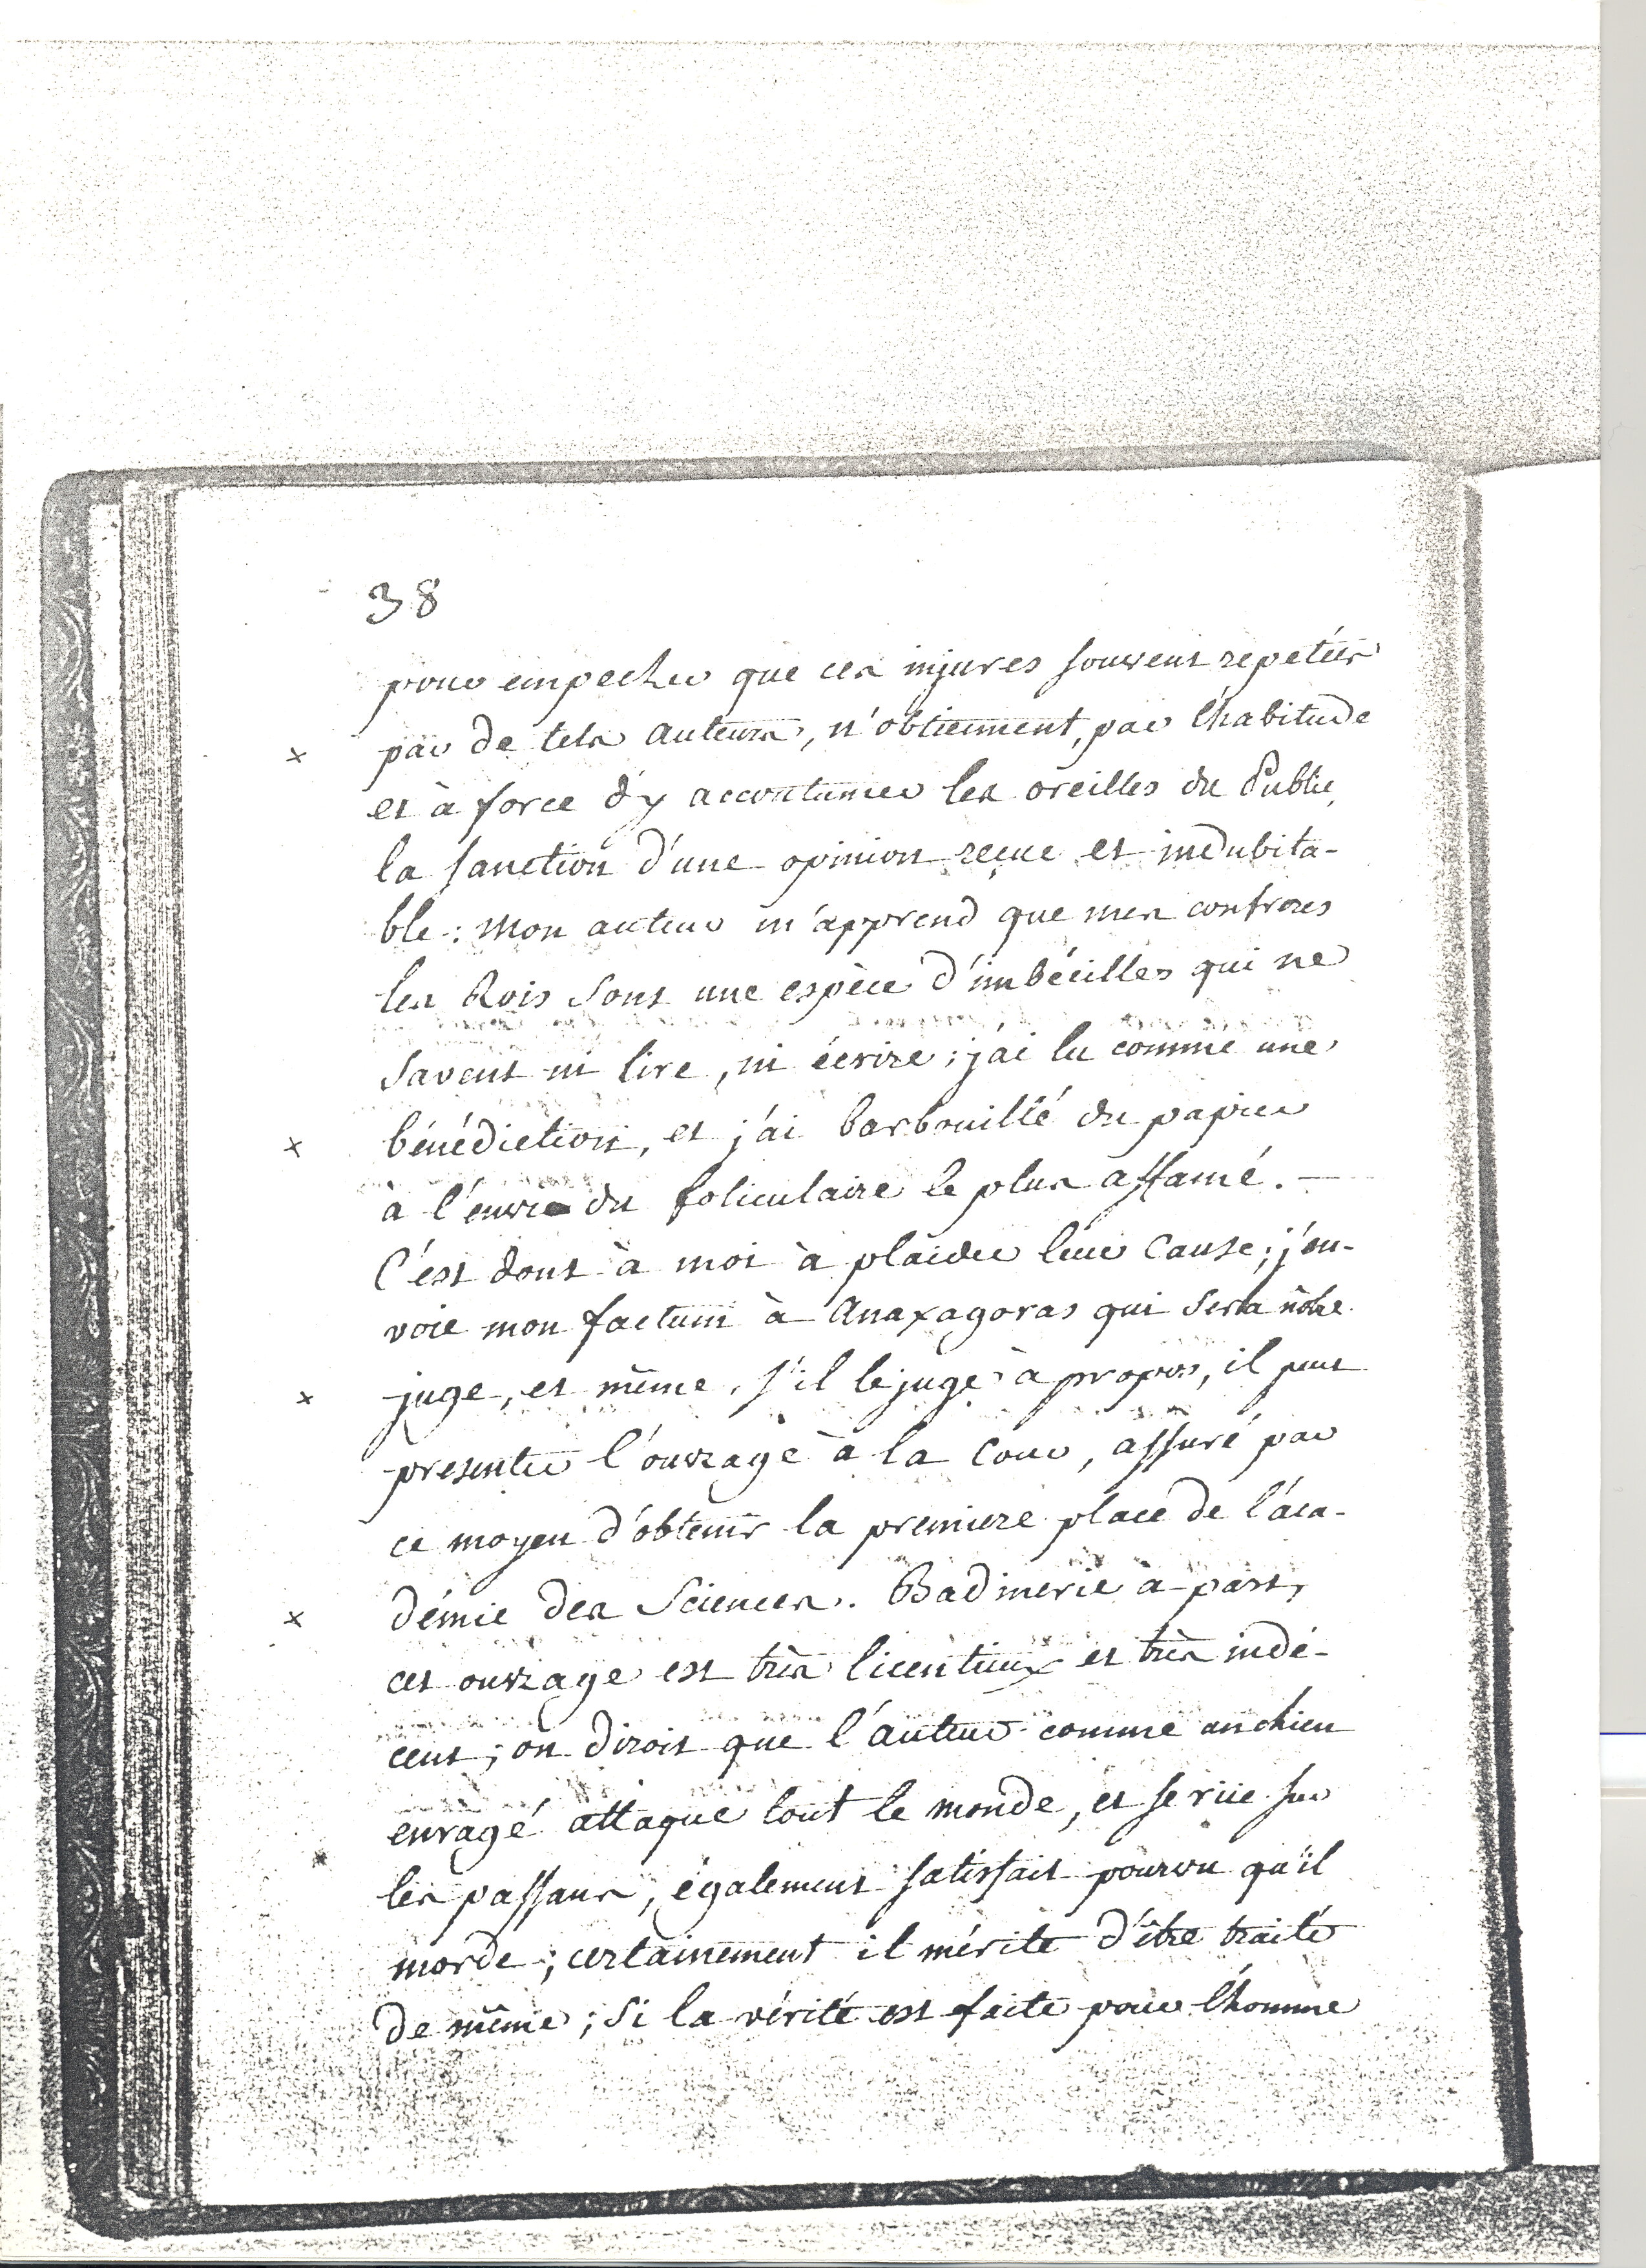 38
pour empecher que ces injures souvent repetées
× par de tels auteurs, n'obtiennent, par l'habitude
et à force d'y accoutumer les oreilles du Public,
la sanction d'une opinion reçue et indubita-
ble: mon auteur m'apprend que mes confreres
les Rois sont une espèce d'imbécilles qui ne
savent ni lire, ni écrire; j'ai lu comme une
× bénédiction, et j'ai barbouillé du papier
à l'envie du foliculaire le plus affamé. —
C'est dont à moi à plaider leur cause; j'en-
voie mon factum à Anaxagoras qui sera nôtre
× juge, et même, s'il le juge à propos, il peut
presenter l'ouvrage à la Cour, assuré par
ce moyen d'obtenir la premiere place de l'aca-
× démie des Sciences. Badinerie à part,
cet ouvrage est très licentieux et très indé-
cent; on diroit que l'auteur comme un chien
enragé attaque tout le monde, et se rüe sur
les passans, également satisfait pourvu qu'il
morde; certainement il mérite d'être traité
de même; si la vérité est faite pour l'homme